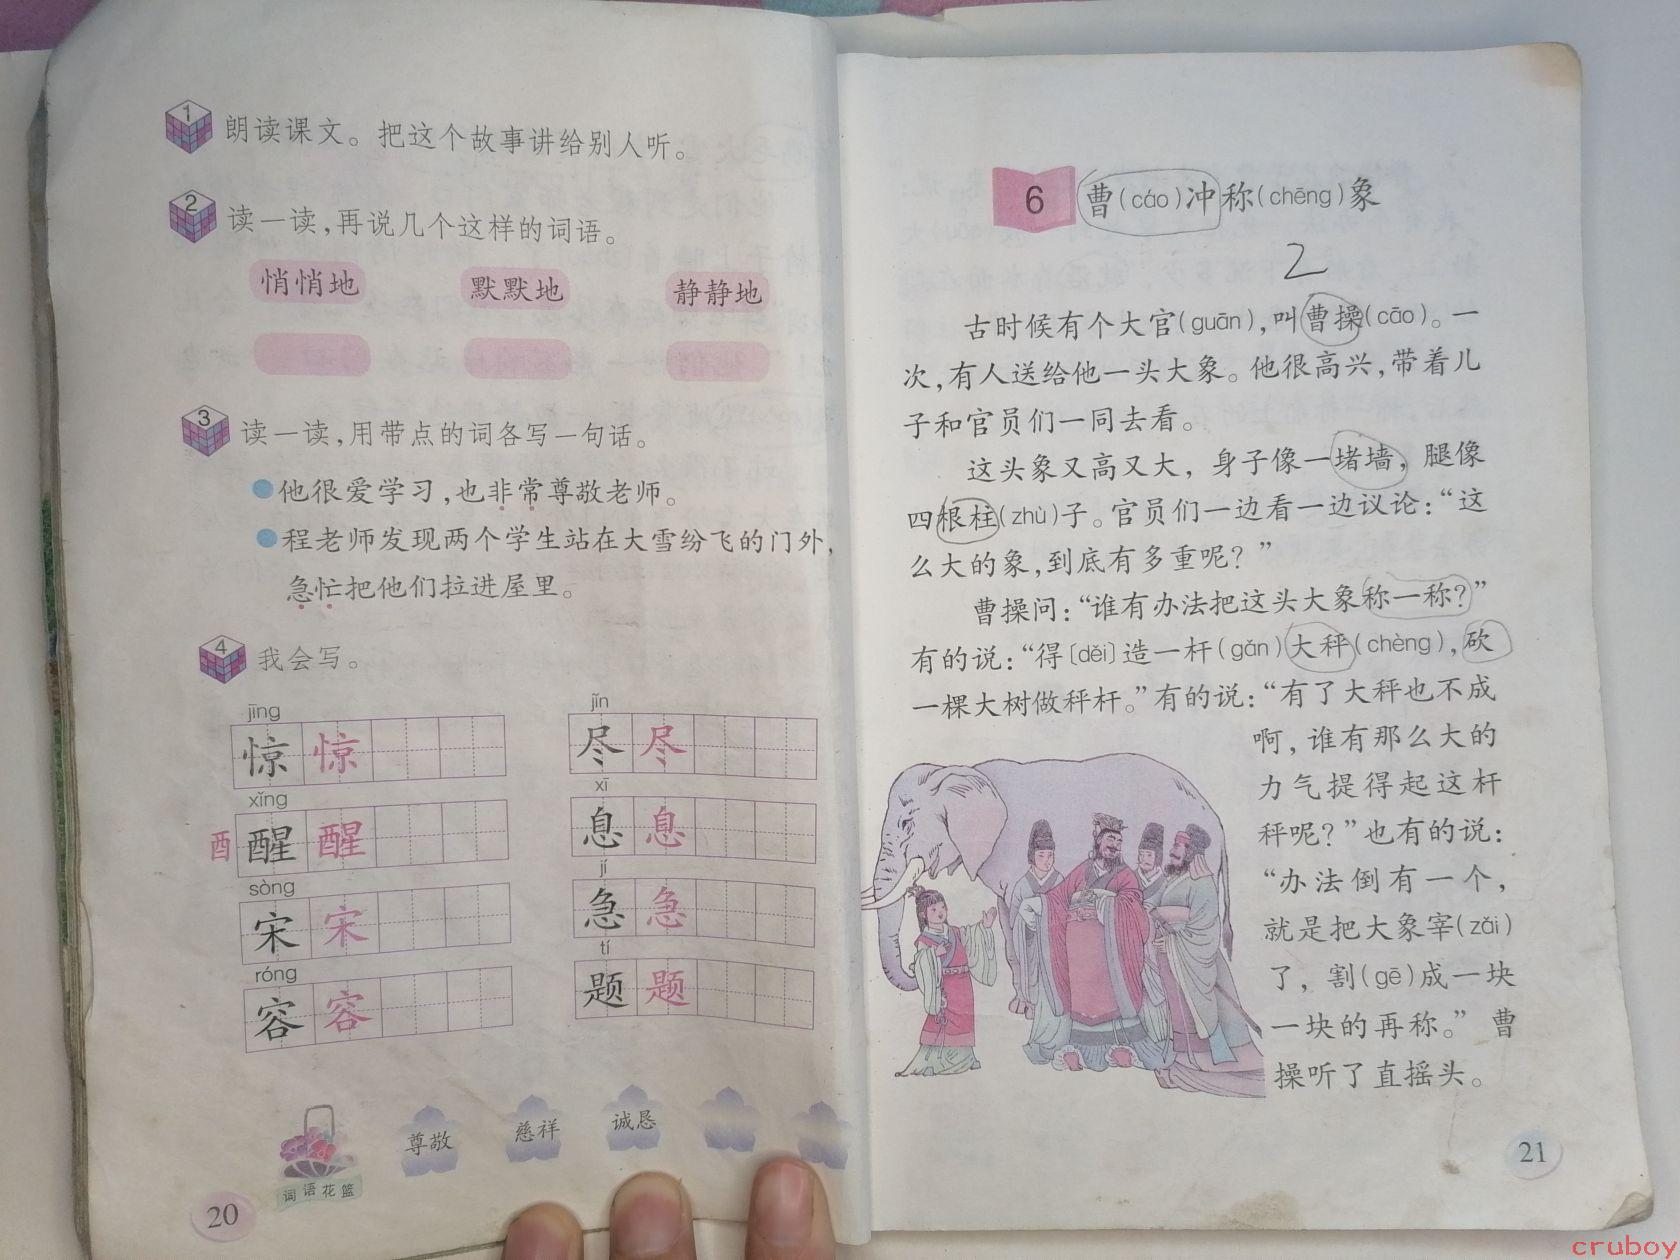 1 朗读课文。把这个故事讲给别人听。
2 读一读,再说几个这样的词语。
悄悄地 默默地 静静地
3 读一读,用带点的词各写一句话。
他很爱学习,也非常尊敬老师。
程老师发现两个学生站在大雪纷飞的门外,
急忙把他们拉进屋里。
4 我会写。
jīng jǐn
惊 惊 尽 尽
xǐng xī
酉 醒 醒 息 息
sòng jí
宋 宋 急 急
róng tí
容 容 题 题
尊敬 慈祥 诚恳
词语花篮
20
6 曹(cáo)冲称(chēng)象
2
古时候有个大官(guān),叫曹操(cāo)。一
次,有人送给他一头大象。他很高兴,带着儿
子和官员们一同去看。
这头象又高又大，身子像一堵墙，腿像
四根柱(zhù)子。官员们一边看一边议论:“这
么大的象,到底有多重呢？”
曹操问:“谁有办法把这头大象称一称?”
有的说:“得〔děi〕造一杆(gǎn)大秤(chèng),砍
一棵大树做秤杆。”有的说:“有了大秤也不成
啊，谁有那么大的
力气提得起这杆
秤呢?”也有的说:
“办法倒有一个,
就是把大象宰(zǎi)
了，割(gē)成一块
一块的再称。”曹
操听了直摇头。
21
cruboy